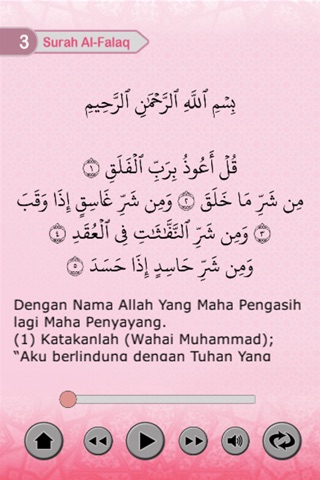 3 Surah Al-Falaq
بِسْمِ ٱللَّهِ ٱلرَّحْمَٰنِ ٱلرَّحِيمِ
قُلْ أَعُوذُ بِرَبِّ ٱلْفَلَقِ ١
مِن شَرِّ مَا خَلَقَ ٢ وَمِن شَرِّ غَاسِقٍ إِذَا وَقَبَ
٣ وَمِن شَرِّ ٱلنَّفَّٰثَٰتِ فِى ٱلْعُقَدِ ٤
وَمِن شَرِّ حَاسِدٍ إِذَا حَسَدَ ٥
Dengan Nama Allah Yang Maha Pengasih
lagi Maha Penyayang.
(1) Katakanlah (Wahai Muhammad);
“Aku berlindung dengan Tuhan Yang